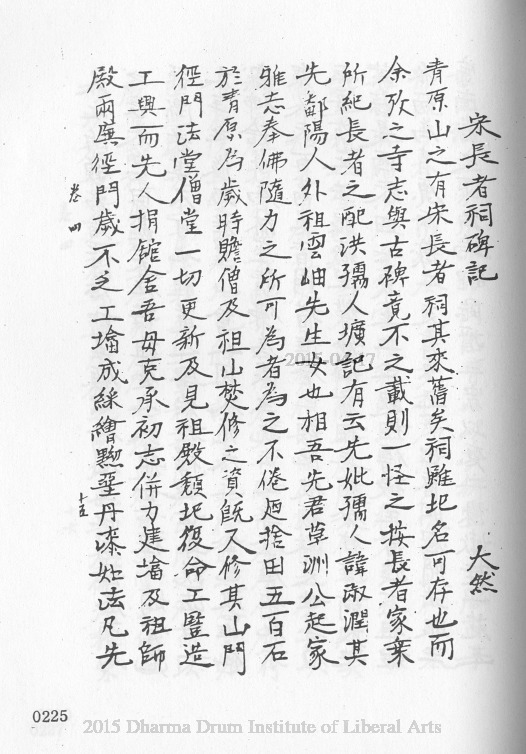 宋長者祠碑記
大然
青原山之有宋長者祠其來舊矣祠雖圮名可存也而
余攷之寺志與古碑竟不之載則一怪之按長者家乗
所紀長者之配洪孺人壙記有云先妣孺人諱淑潤其
先鄱陽人外祖雲岫先生女也相吾先君草洲公起家
雅志奉佛隨力之所可為者為之不倦廼捨田五百石
於青原為歲時贍僧及祖山焚修之資既又修其山門
徑門法堂僧堂一切更新及見祖殿頹圮復命工豎造
工興而先人捐館舍吾母克承初志併力建墖及祖師
殿兩廡徑門歲不乏工墖成綵繪黝堊丹漆如法凡先
卷四
十五
0225
2015 Dharma Drum Institute of Liberal Arts